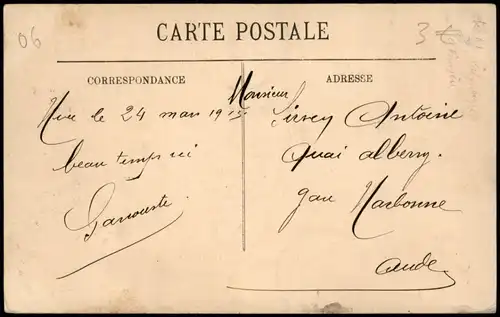 06
CARTE POSTALE
3
CORRESPONDANCE
ADRESSE
Nice le 24 mars 1915
beau temps ici
Garrouste
Monsieur
Sirvey Antoine
Quai alberny.
gare Narbonne
Aude